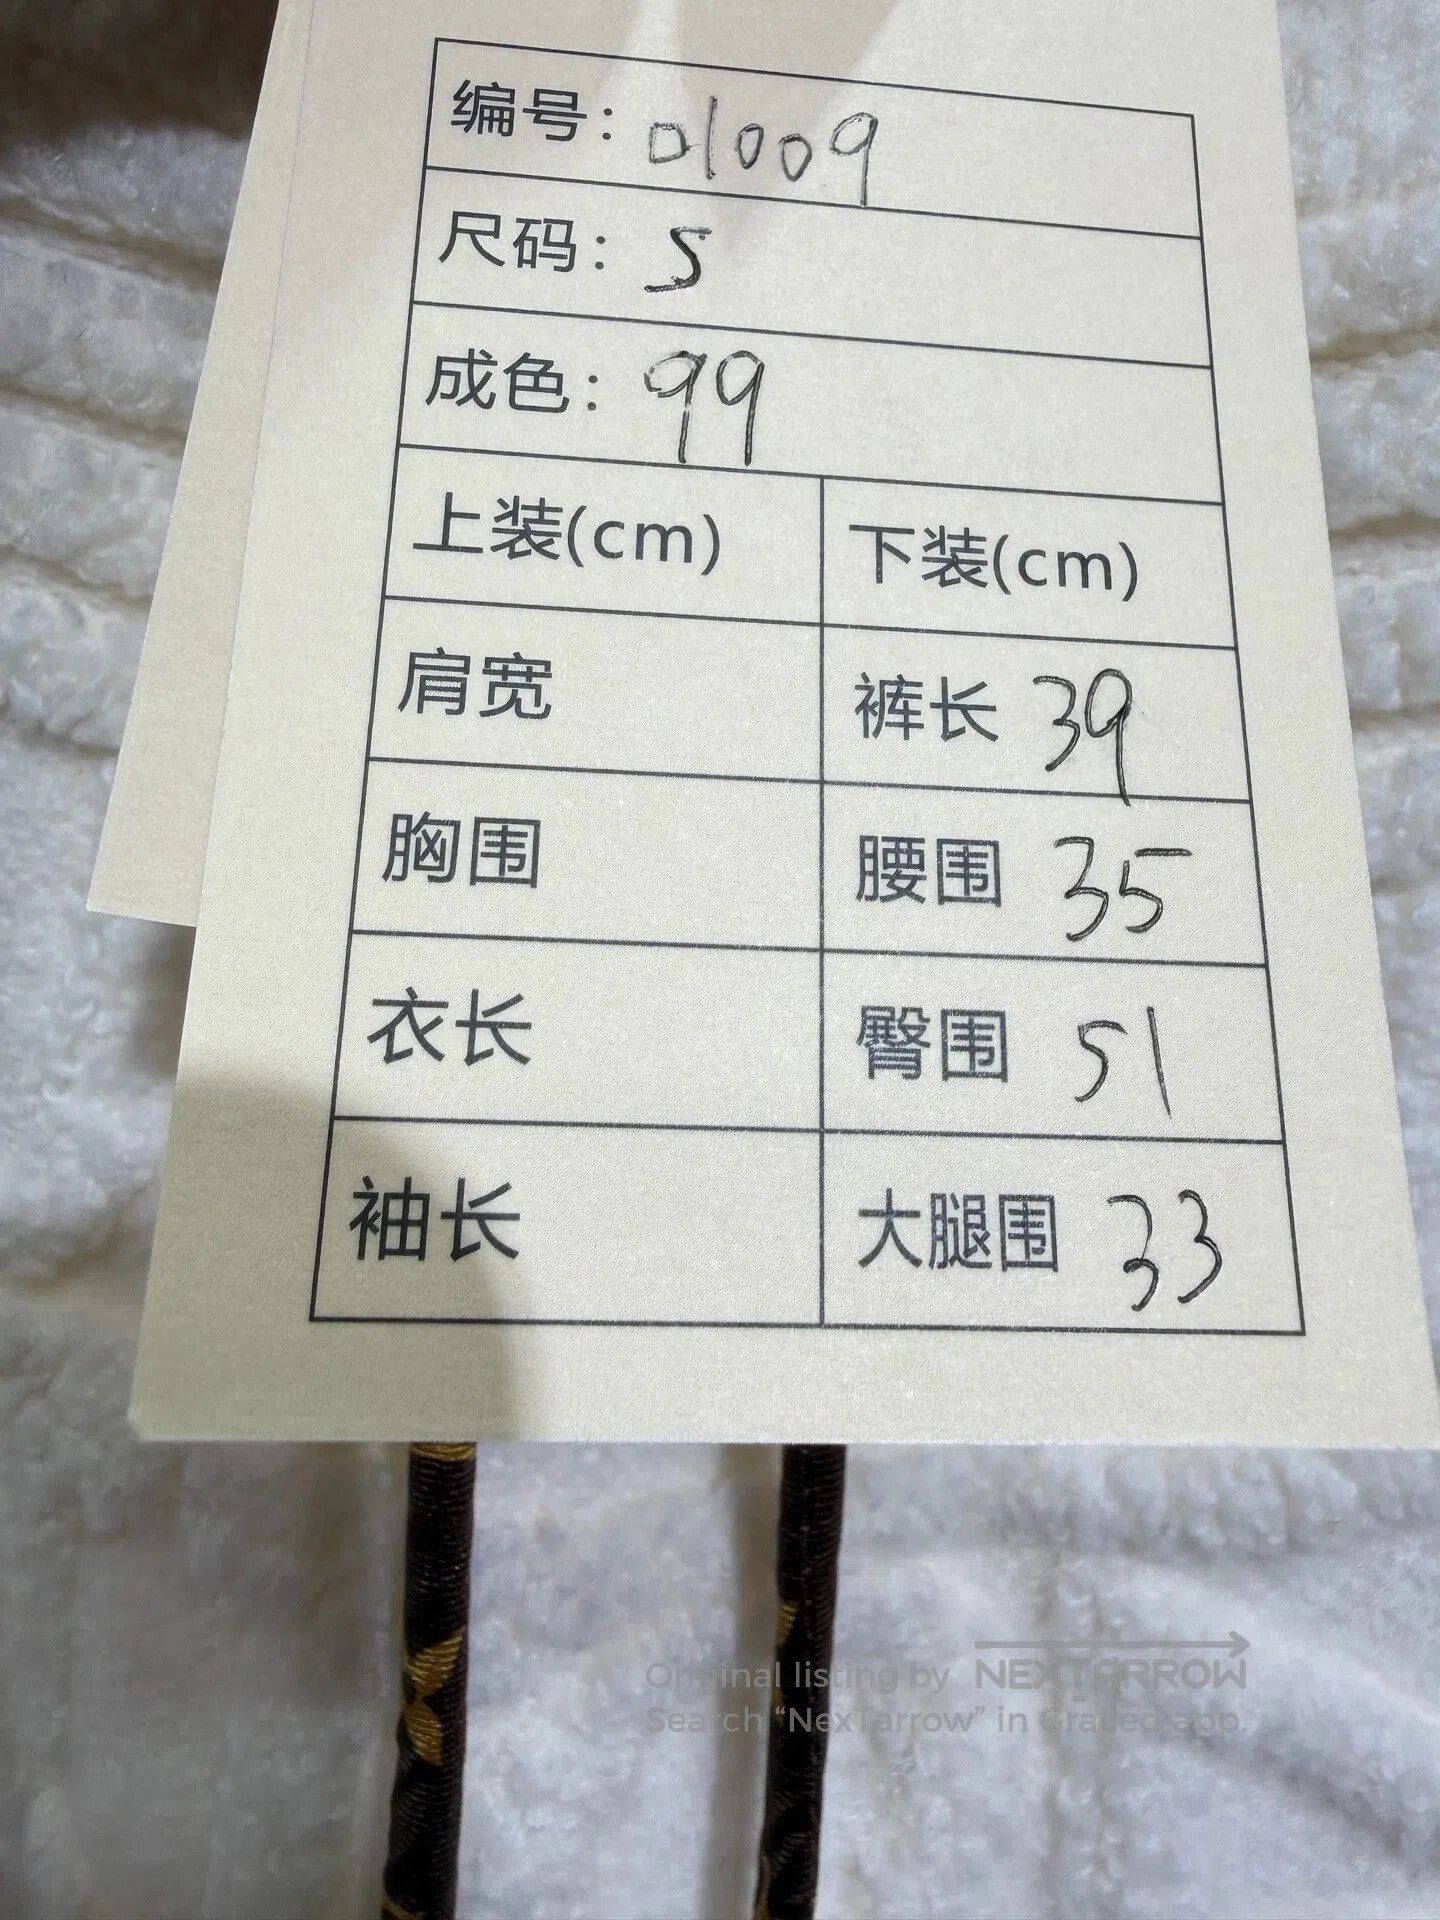 编号：01009
尺码：S
成色：99
上装(cm) 下装(cm)
肩宽 裤长 39
胸围 腰围 35
衣长 臀围 51
袖长 大腿围 33
Original listing by NEXTARROW
Search “NexTarrow” in Grailed app